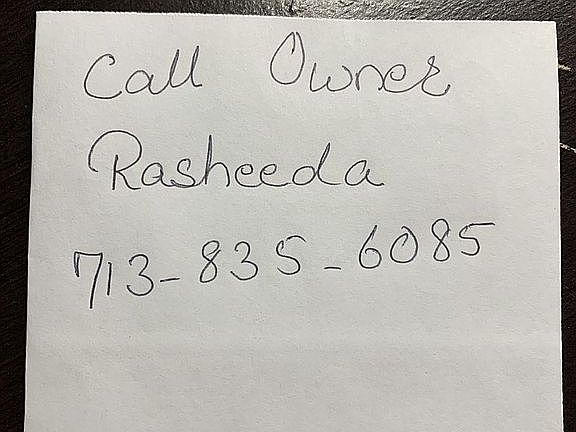 Call Owner
Rasheeda
713-835-6085